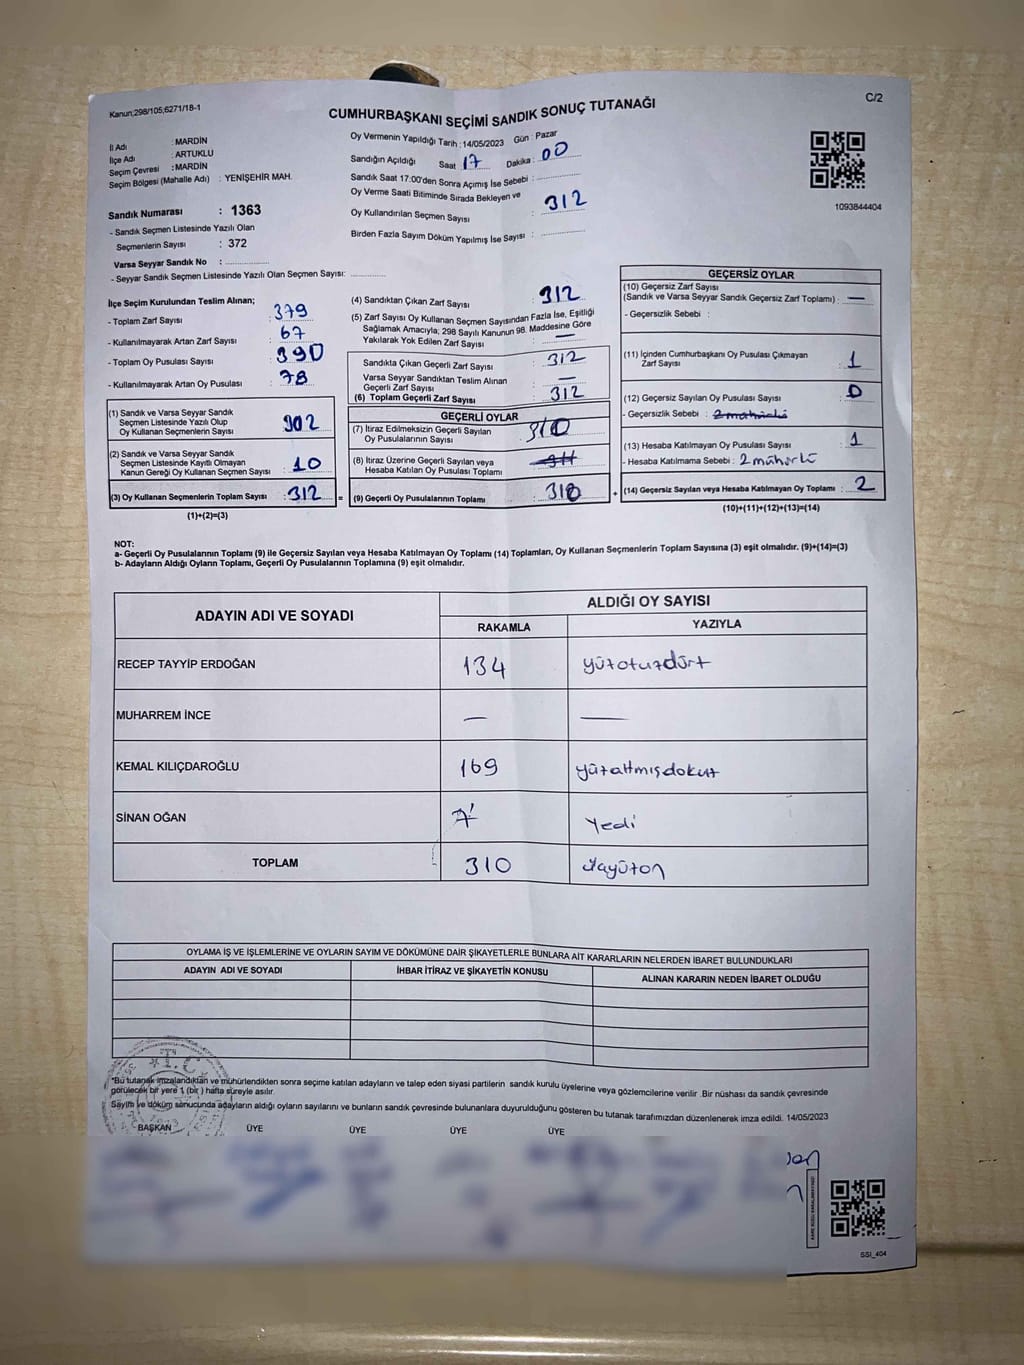 Kanun;298/105;6271/18-1
C/2
CUMHURBAŞKANI SEÇİMİ SANDIK SONUÇ TUTANAĞI
İl Adı : MARDİN
İlçe Adı : ARTUKLU
Seçim Çevresi : MARDİN
Seçim Bölgesi (Mahalle Adı) : YENİŞEHİR MAH.
Sandık Numarası : 1363
- Sandık Seçmen Listesinde Yazılı Olan
Seçmenlerin Sayısı : 372
Varsa Seyyar Sandık No :
- Seyyar Sandık Seçmen Listesinde Yazılı Olan Seçmen Sayısı:
Oy Vermenin Yapıldığı Tarih : 14/05/2023 Gün : Pazar
Sandığın Açıldığı Saat 17 Dakika : 00
Sandık Saat 17:00'den Sonra Açımış İse Sebebi :
Oy Verme Saati Bitiminde Sırada Bekleyen ve
Oy Kullandırılan Seçmen Sayısı : 312
Birden Fazla Sayım Döküm Yapılmış İse Sayısı :
1093844404
İlçe Seçim Kurulundan Teslim Alınan;
- Toplam Zarf Sayısı : 379
- Kullanılmayarak Artan Zarf Sayısı : 67
- Toplam Oy Pusulası Sayısı : 390
- Kullanılmayarak Artan Oy Pusulası : 78
(1) Sandık ve Varsa Seyyar Sandık
Seçmen Listesinde Yazılı Olup
Oy Kullanan Seçmenlerin Sayısı : 302
(2) Sandık ve Varsa Seyyar Sandık
Seçmen Listesinde Kayıtlı Olmayan
Kanun Gereği Oy Kullanan Seçmen Sayısı : 10
(3) Oy Kullanan Seçmenlerin Toplam Sayısı : 312 =
(1)+(2)=(3)
(4) Sandıktan Çıkan Zarf Sayısı : 312
(5) Zarf Sayısı Oy Kullanan Seçmen Sayısından Fazla İse, Eşitliği
Sağlamak Amacıyla; 298 Sayılı Kanunun 98. Maddesine Göre
Yakılarak Yok Edilen Zarf Sayısı : —
Sandıkta Çıkan Geçerli Zarf Sayısı : 312
Varsa Seyyar Sandıktan Teslim Alınan
Geçerli Zarf Sayısı : —
(6) Toplam Geçerli Zarf Sayısı : 312
GEÇERLİ OYLAR
(7) İtiraz Edilmeksizin Geçerli Sayılan
Oy Pusulalarının Sayısı : 310
(8) İtiraz Üzerine Geçerli Sayılan veya
Hesaba Katılan Oy Pusulası Toplamı :
(9) Geçerli Oy Pusulalarının Toplamı : 310 +
GEÇERSİZ OYLAR
(10) Geçersiz Zarf Sayısı
(Sandık ve Varsa Seyyar Sandık Geçersiz Zarf Toplamı) : —
- Geçersizlik Sebebi :
(11) İçinden Cumhurbaşkanı Oy Pusulası Çıkmayan
Zarf Sayısı : 1
(12) Geçersiz Sayılan Oy Pusulası Sayısı : 0
- Geçersizlik Sebebi : 2 mühürlü
(13) Hesaba Katılmayan Oy Pusulası Sayısı : 1
- Hesaba Katılmama Sebebi : 2 mühürlü
(14) Geçersiz Sayılan veya Hesaba Katılmayan Oy Toplamı : 2
(10)+(11)+(12)+(13)=(14)
NOT:
a- Geçerli Oy Pusulalarının Toplamı (9) ile Geçersiz Sayılan veya Hesaba Katılmayan Oy Toplamı (14) Toplamları, Oy Kullanan Seçmenlerin Toplam Sayısına (3) eşit olmalıdır. (9)+(14)=(3)
b- Adayların Aldığı Oyların Toplamı, Geçerli Oy Pusulalarının Toplamına (9) eşit olmalıdır.
ADAYIN ADI VE SOYADI
ALDIĞI OY SAYISI
RAKAMLA YAZIYLA
RECEP TAYYİP ERDOĞAN 134 yüzotuzdört
MUHARREM İNCE — —
KEMAL KILIÇDAROĞLU 169 yüzaltmışdokuz
SİNAN OĞAN 7 Yedi
TOPLAM 310 üçyüzon
OYLAMA İŞ VE İŞLEMLERİNE VE OYLARIN SAYIM VE DÖKÜMÜNE DAİR ŞİKAYETLERLE BUNLARA AİT KARARLARIN NELERDEN İBARET BULUNDUKLARI
ADAYIN ADI VE SOYADI İHBAR İTİRAZ VE ŞİKAYETİN KONUSU ALINAN KARARIN NEDEN İBARET OLDUĞU
T.C
*Bu tutanak imzalandıktan ve mühürlendikten sonra seçime katılan adayların ve talep eden siyasi partilerin sandık kurulu üyelerine veya gözlemcilerine verilir .Bir nüshası da sandık çevresinde
görülecek bir yere 1 (bir ) hafta süreyle asılır.
Sayım ve döküm sonucunda adayların aldığı oyların sayılarını ve bunların sandık çevresinde bulunanlara duyurulduğunu gösteren bu tutanak tarafımızdan düzenlenerek imza edildi. 14/05/2023
BAŞKAN ÜYE ÜYE ÜYE ÜYE
SSI_404